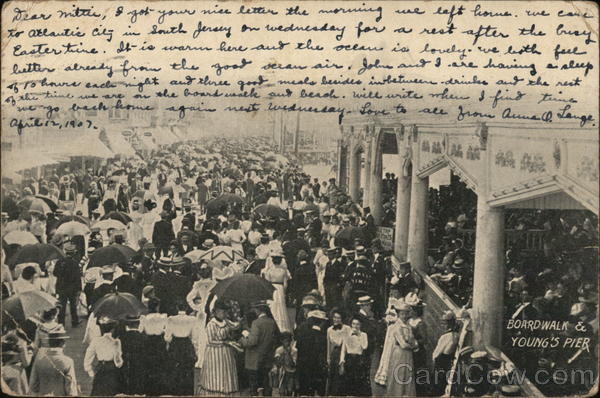 Dear Mittie, I got your nice letter the morning we left home. we came
to Atlantic City in South Jersey on wednesday for a rest after the busy
Easter time. It is warm here and the ocean is lovely. we both feel
better already from the good ocean air. John and I are having a sleep
of 10 hours each night and three good meals besides inbetween drinks and the rest
of the time we are on the board walk and beach. Will write when I find time
we go back home again next Wednesday. Love to all from Anna D. Lange.
April 12, 1907.
BOARDWALK &
YOUNG'S PIER
CardCow.com